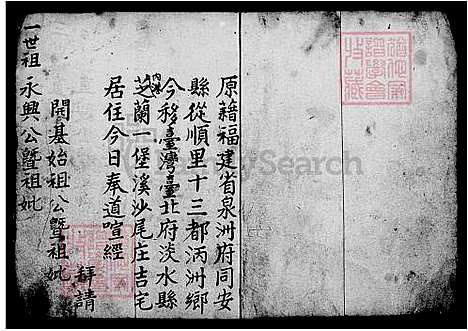 原籍福建省泉洲府同安
縣從順里十三都丙洲鄉
今移臺灣臺北府淡水縣
內港芝蘭一堡溪沙尾庄吉宅
居住今日奉道喧經
拜請
開基始祖公暨祖妣
一世祖永興公暨祖妣
Search